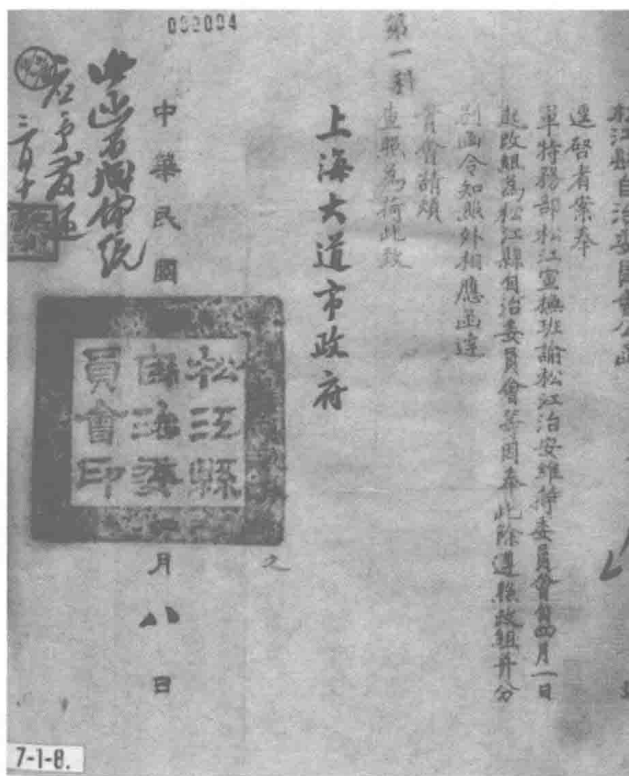 松江縣自治委員會公函
逕啓者案奉
軍特務部松江宣撫班諭松江治安維持委員會自四月一日
起改組為松江縣自治委員會等因奉此除遵照改組并分
別函令知照外相應函達
貴會請煩
查照為荷此致
第一科
上海大道市政府
002004
中華民國
月八日
松江縣
自治委
員會印
7-1-8.